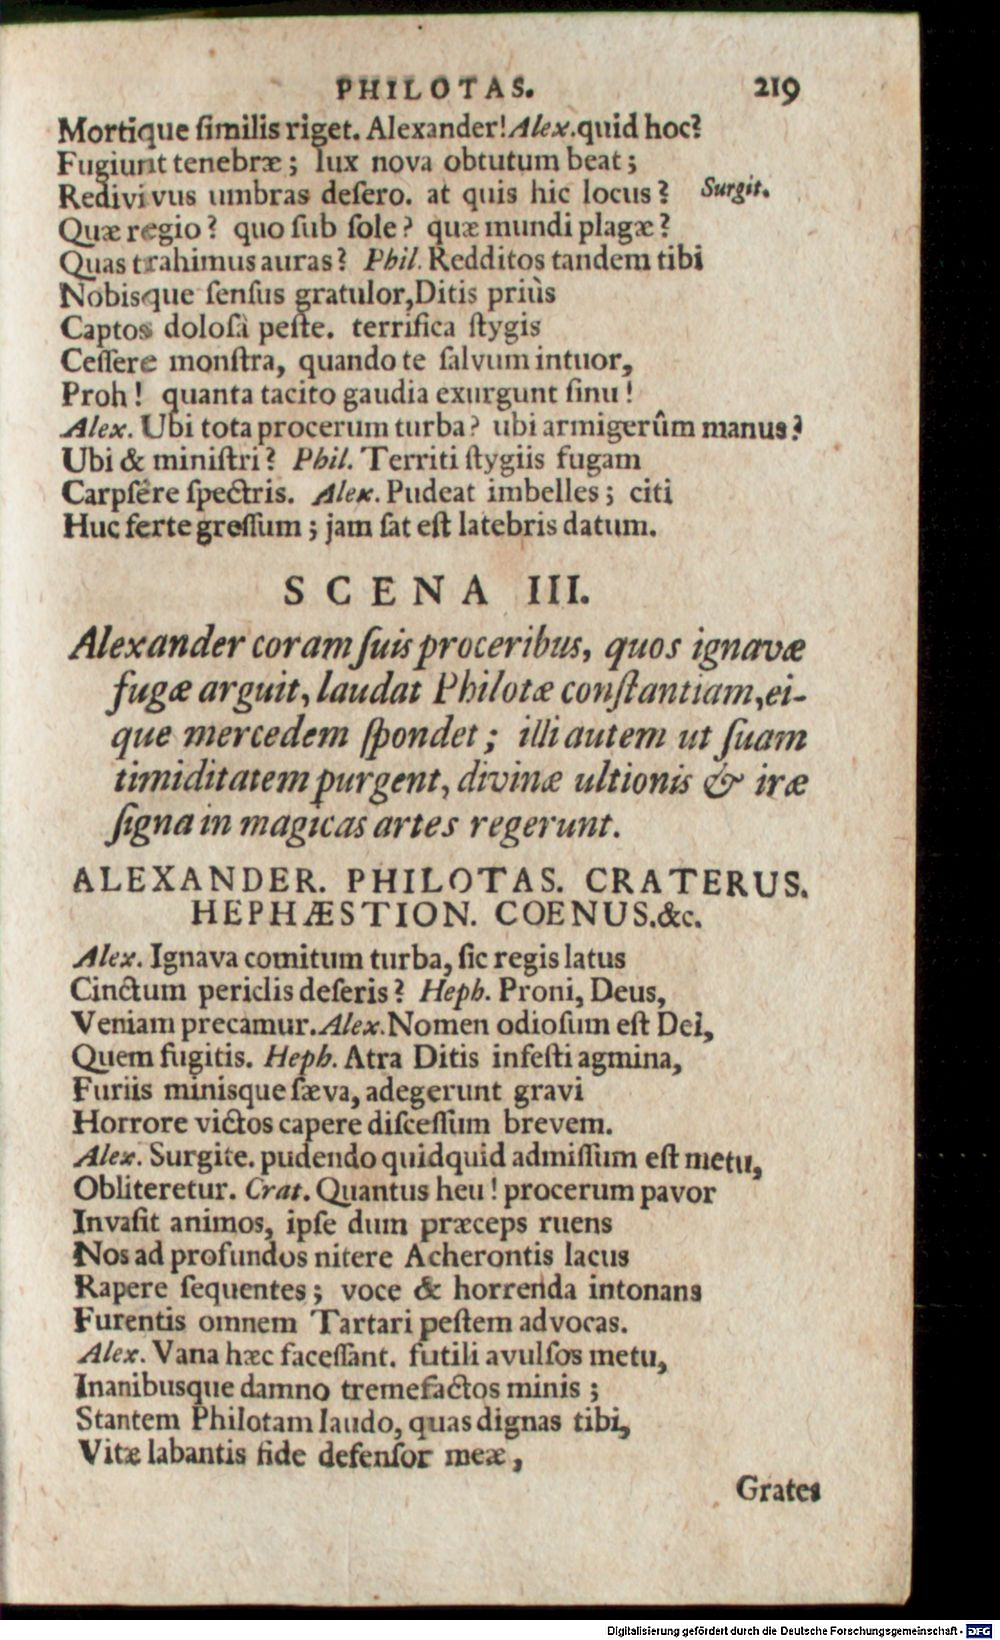 PHILOTAS. 219
Mortique ſimilis riget. Alexander! Alex. quid hoc?
Fugiunt tenebræ; lux nova obtutum beat;
Redivivus umbras deſero. at quis hic locus? Surgit.
Quæ regio? quo ſub ſole? quæ mundi plagæ?
Quas trahimus auras? Phil. Redditos tandem tibi
Nobisque ſenſus gratulor, Ditis priùs
Captos doloſà peſte. terrifica ſtygis
Ceſſere monſtra, quando te ſalvum intuor,
Proh! quanta tacito gaudia exurgunt ſinu!
Alex. Ubi tota procerum turba? ubi armigerûm manus?
Ubi & miniſtri? Phil. Territi ſtygiis fugam
Carpſêre ſpectris. Alex. Pudeat imbelles; citi
Huc ferte greſſum; jam ſat eſt latebris datum.
SCENA III.
Alexander coram ſuis proceribus, quos ignavæ
fugæ arguit, laudat Philotæ conſtantiam, ei-
que mercedem ſpondet; illi autem ut ſuam
timiditatem purgent, divinæ ultionis & iræ
ſigna in magicas artes regerunt.
ALEXANDER. PHILOTAS. CRATERUS.
HEPHÆSTION. COENUS. &c.
Alex. Ignava comitum turba, ſic regis latus
Cinctum periclis deſeris? Heph. Proni, Deus,
Veniam precamur. Alex. Nomen odioſum eſt Dei,
Quem fugitis. Heph. Atra Ditis infeſti agmina,
Furiis minisque ſæva, adegerunt gravi
Horrore victos capere diſceſſum brevem.
Alex. Surgite. pudendo quidquid admiſſum eſt metu,
Obliteretur. Crat. Quantus heu! procerum pavor
Invaſit animos, ipſe dum præceps ruens
Nos ad profundos nitere Acherontis lacus
Rapere ſequentes; voce & horrenda intonans
Furentis omnem Tartari peſtem advocas.
Alex. Vana hæc faceſſant. futili avulſos metu,
Inanibusque damno tremefactos minis;
Stantem Philotam laudo, quas dignas tibi,
Vitæ labantis fide defenſor meæ,
Grates
Digitalisierung gefördert durch die Deutsche Forschungsgemeinschaft - DFG